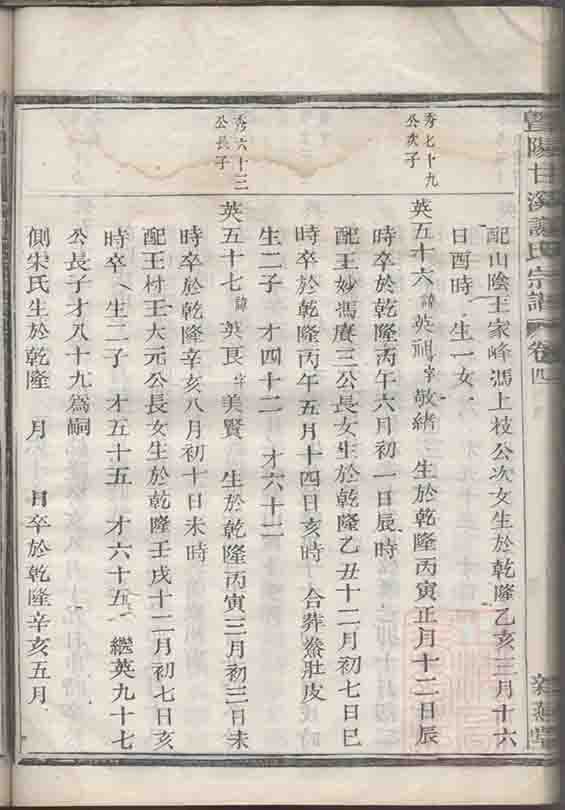 暨陽甘溪 氏宗譜 卷四
配山陰王家峰馮上枝公次女生於乾隆乙亥三月十六
日酉時 生一女
秀七十九
公次子
英五十六 諱英祖 字敬緒 生於乾隆丙寅正月十二日辰
時卒於乾隆丙午六月初一日辰時
配王妙馮賡三公長女生於乾隆乙丑十二月初七日巳
時卒於乾隆丙午五月十四日亥時 合葬 肚皮
生二子 才四十二 才六十二
秀六十三
公長子
英五十七 諱英良 字美賢 生於乾隆丙寅三月初三日未
時卒於乾隆辛亥八月初十日未時
配王村王大元公長女生於乾隆壬戌十二月初七日亥
時卒 生二子 才五十五 才六十五 繼英九十七
公長子才八十九為嗣
側宋氏生於乾隆 月 日卒於乾隆辛亥五月